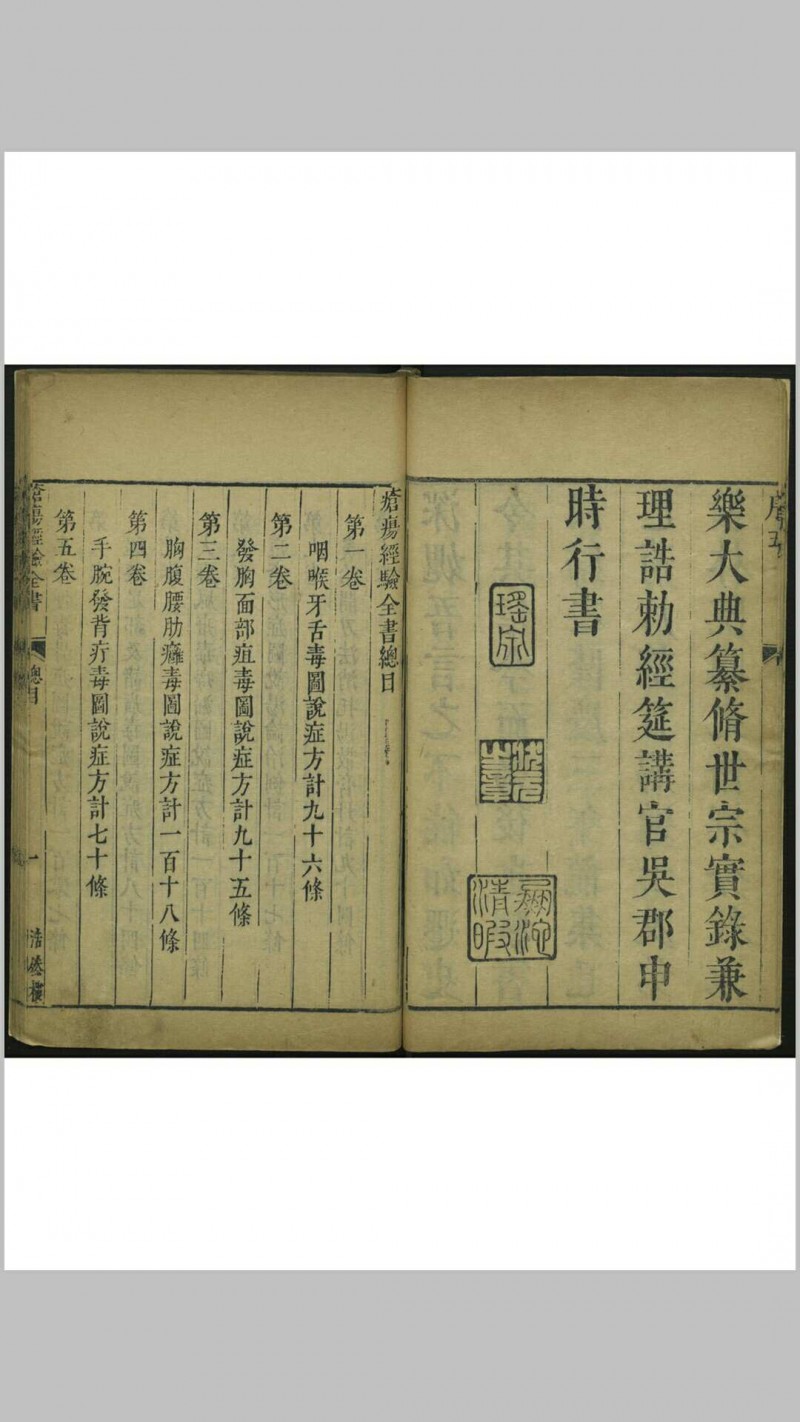 序五
樂大典纂脩世宗實錄兼
理誥勅經筵講官吳郡申
時行書
瑤泉
瀛洲清暇
瘡瘍經驗全書總目
第一卷
咽喉牙舌毒圖說症方計九十六條
第二卷
發胸面部疽毒圖說症方計九十五條
第三卷
胸腹腰肋癰毒圖說症方計一百十八條
第四卷
手腕發背疔毒圖說症方計七十條
第五卷
瘡瘍經驗全書
總目
一
浩然樓